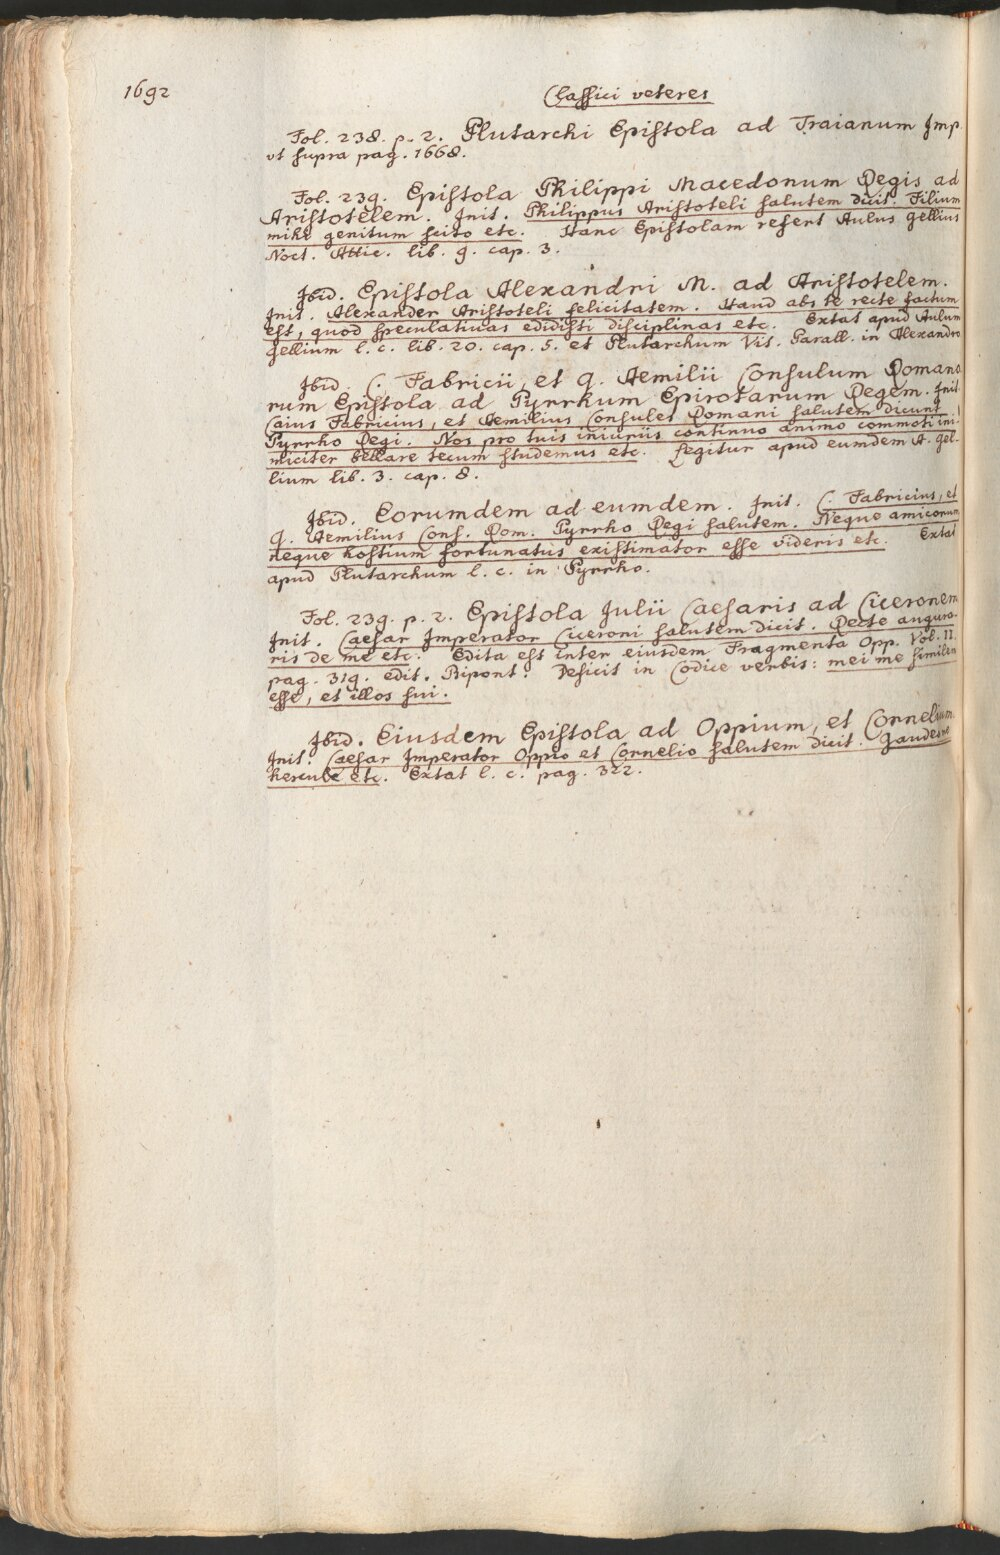 1692
Classici veteres
Fol. 238. p. 2. Plutarchi Epistola ad Traianum Imp.
ut supra pag. 1668.
Fol. 239. Epistola Philippi Macedonum Regis ad
Aristotelem. Init. Philippus Aristoteli salutem dicit. Filium
mihi genitum scito etc. Hanc Epistolam refert Aulus Gellius
Noct. Attic. lib. 9. cap. 3.
Ibid. Epistola Alexandri M. ad Aristotelem.
Init. Alexander Aristoteli felicitatem. Haud abs te recte factum
est, quod speculativas edidisti disciplinas etc. Extat apud Aulum
Gellium l. c. lib. 20. cap. 5. et Plutarchum Vit. Parall. in Alexandro
Ibid. C. Fabricii, et Q. Aemilii Consulum Romano
rum Epistola ad Pyrrhum Epirotarum Regem. Init
Caius Fabricius, et Aemilius Consules Romani salutem dicunt
Pyrrho Regi. Nos pro tuis iniuriis continuo animo commoti ini-
miciter bellare tecum studemus etc. Legitur apud eumdem A. Gel-
lium lib. 3. cap. 8.
Ibid. Eorumdem ad eumdem. Init. C. Fabricius, et
Q. Aemilius Cons. Rom. Pyrrho Regi salutem. Neque amicorum
neque hostium fortunatus existimator esse videris etc. Extat
apud Plutarchum l. c. in Pyrrho.
Fol. 239. p. 2. Epistola Julii Caesaris ad Ciceronem
Init. Caesar Imperator Ciceroni salutem dicit. Recte augura-
ris de me etc. Edita est inter eiusdem Fragmenta Opp. Vol. II.
pag. 319. edit. Bipont. Desicit in Codice verbis: mei me similem
esse, et illos sui.
Ibid. Eiusdem Epistola ad Oppium, et Cornelium.
Init. Caesar Imperator Oppio et Cornelio salutem dicit. Gaudeo me
hercule etc. Extat l. c. pag. 322.